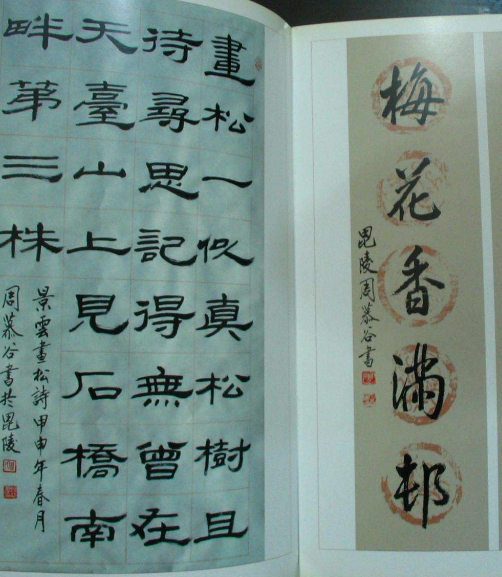 畫松一似真松樹且
待尋思記得無曾在
天臺山上見石橋南
畔苐三株
景雲畫松詩甲申年春月
周慕谷書於毘陵
梅花香滿邨
毘陵周慕谷書